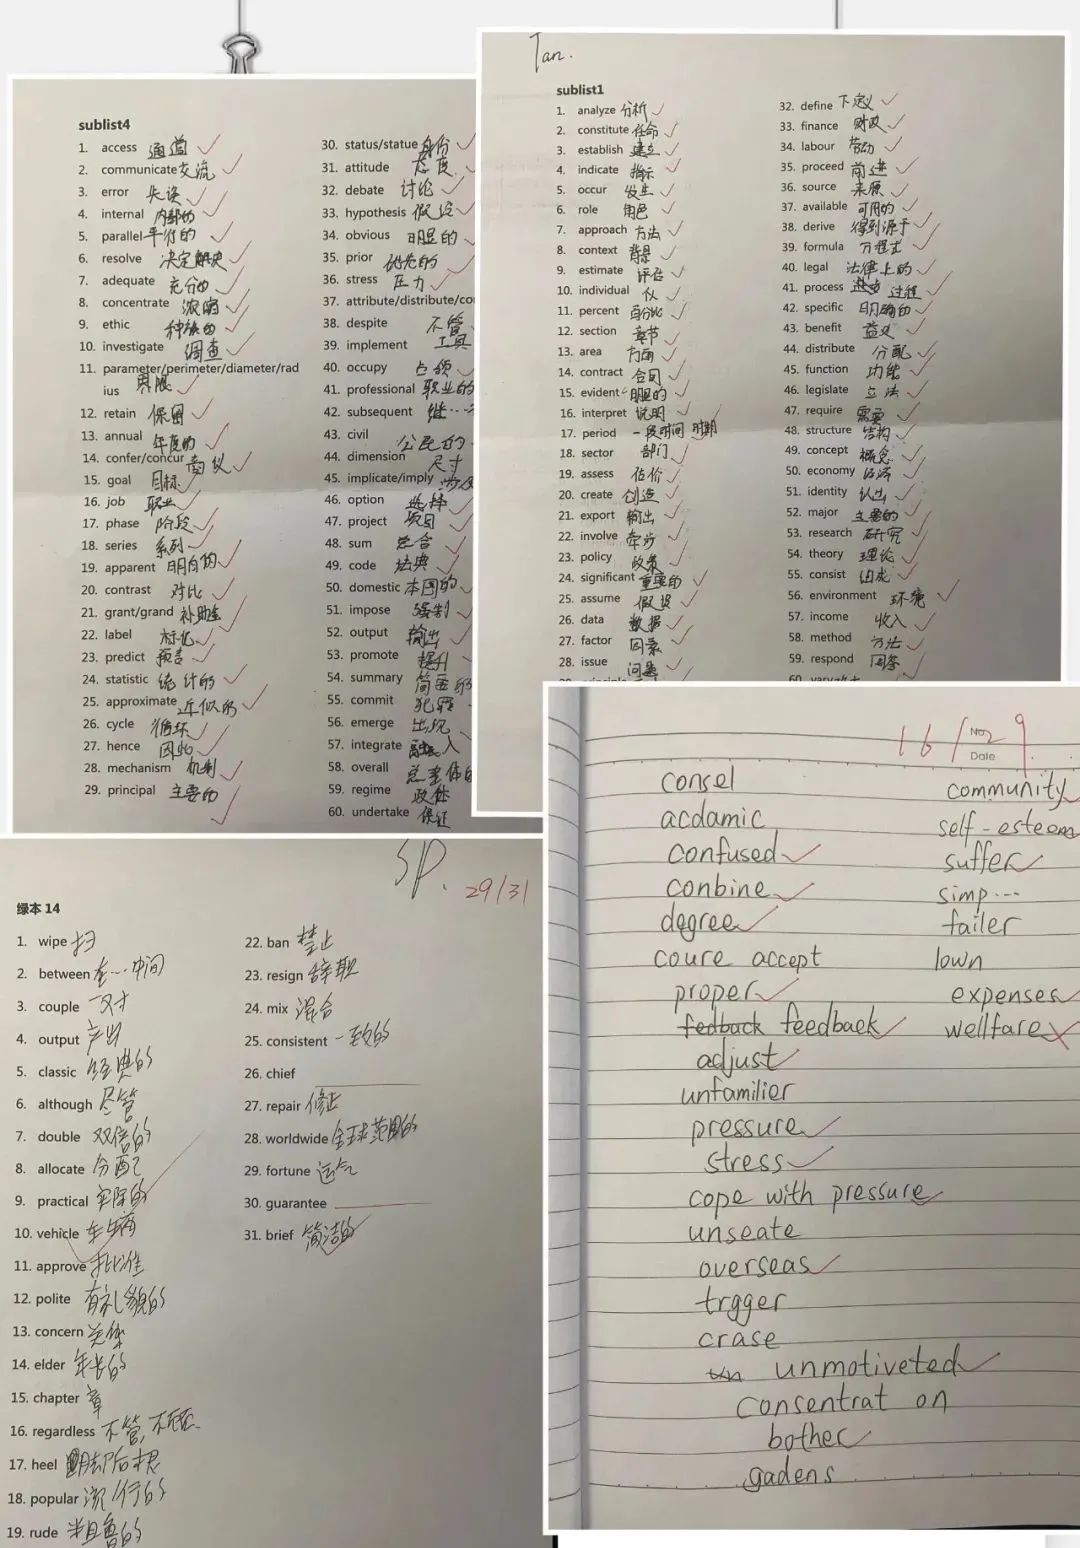 sublist4
1. access 通道
2. communicate 交流
3. error 失误
4. internal 内部的
5. parallel 平行的
6. resolve 决定解决
7. adequate 充分的
8. concentrate 浓缩
9. ethic 种族的
10. investigate 调查
11. parameter/perimeter/diameter/rad
ius 界限
12. retain 保留
13. annual 年度的
14. confer/concur 商议
15. goal 目标
16. job 职业
17. phase 阶段
18. series 系列
19. apparent 明白的
20. contrast 对比
21. grant/grand 补助金
22. label 标记
23. predict 预言
24. statistic 统计的
25. approximate 近似的
26. cycle 循环
27. hence 因此
28. mechanism 机制
29. principal 主要的
30. status/statue 身份
31. attitude 态度
32. debate 讨论
33. hypothesis 假设
34. obvious 明显的
35. prior 优先的
36. stress 压力
37. attribute/distribute/co
38. despite 不管
39. implement 工具
40. occupy 占领
41. professional 职业的
42. subsequent 继…
43. civil 公民的
44. dimension 尺寸
45. implicate/imply 涉及
46. option 选择
47. project 项目
48. sum 总合
49. code 法典
50. domestic 本国的
51. impose 强制
52. output 输出
53. promote 提升
54. summary 简要的
55. commit 犯罪
56. emerge 出现
57. integrate 融入
58. overall 总体的
59. regime 政体
60. undertake 保证
Tan.
sublist1
1. analyze 分析
2. constitute 任命
3. establish 建立
4. indicate 指示
5. occur 发生
6. role 角色
7. approach 方法
8. context 背景
9. estimate 评估
10. individual 个人
11. percent 百分比
12. section 章节
13. area 方面
14. contract 合同
15. evident 明显的
16. interpret 说明
17. period 一段时间 时期
18. sector 部门
19. assess 估价
20. create 创造
21. export 输出
22. involve 牵涉
23. policy 政策
24. significant 重要的
25. assume 假设
26. data 数据
27. factor 因素
28. issue 问题
32. define 下定义
33. finance 财政
34. labour 劳动
35. proceed 前进
36. source 来源
37. available 可用的
38. derive 得到源于
39. formula 方程式
40. legal 法律上的
41. process 过程
42. specific 明确的
43. benefit 益义
44. distribute 分配
45. function 功能
46. legislate 立法
47. require 需要
48. structure 结构
49. concept 概念
50. economy 经济
51. identity 认出
52. major 主要的
53. research 研究
54. theory 理论
55. consist 组成
56. environment 环境
57. income 收入
58. method 方法
59. respond 回答
60. vary
SP. 29/31
绿本 14
1. wipe 扫
2. between 在…中间
3. couple 一对
4. output 产出
5. classic 经典的
6. although 尽管
7. double 双倍的
8. allocate 分配
9. practical 实际的
10. vehicle 车辆
11. approve 批准
12. polite 有礼貌的
13. concern 关系
14. elder 年长的
15. chapter 章
16. regardless 不管,不顾
17. heel 脚后根
18. popular 流行的
19. rude 粗鲁的
22. ban 禁止
23. resign 辞职
24. mix 混合
25. consistent 一致的
26. chief
27. repair 修正
28. worldwide 全球范围的
29. fortune 运气
30. guarantee
31. brief 简洁的
16/29
No.
Date
consel
acdamic
confused
conbine
degree
coure accept
proper
fedback feedback
adjust
unfamilier
pressure
stress
cope with pressure
unseate
overseas
trgger
crase
un unmotiveted
consentrat on
bother
gadens
community
self-esteem
suffer
simp...
failer
lown
expenses
wellfare